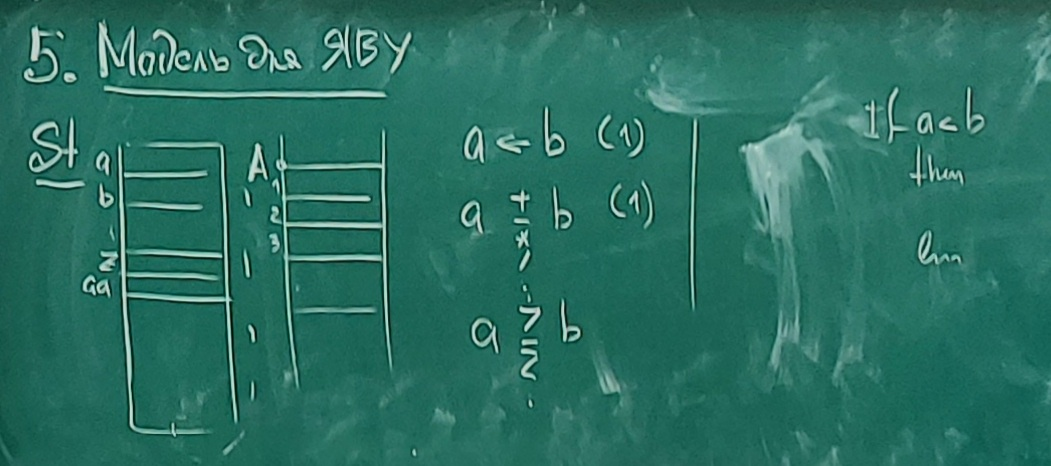 5. Модель для ЯВУ
St
a
b
z
aa
A
1
2
3
a ← b (1)
a + - * / b (1)
a > = < b
If a < b
then